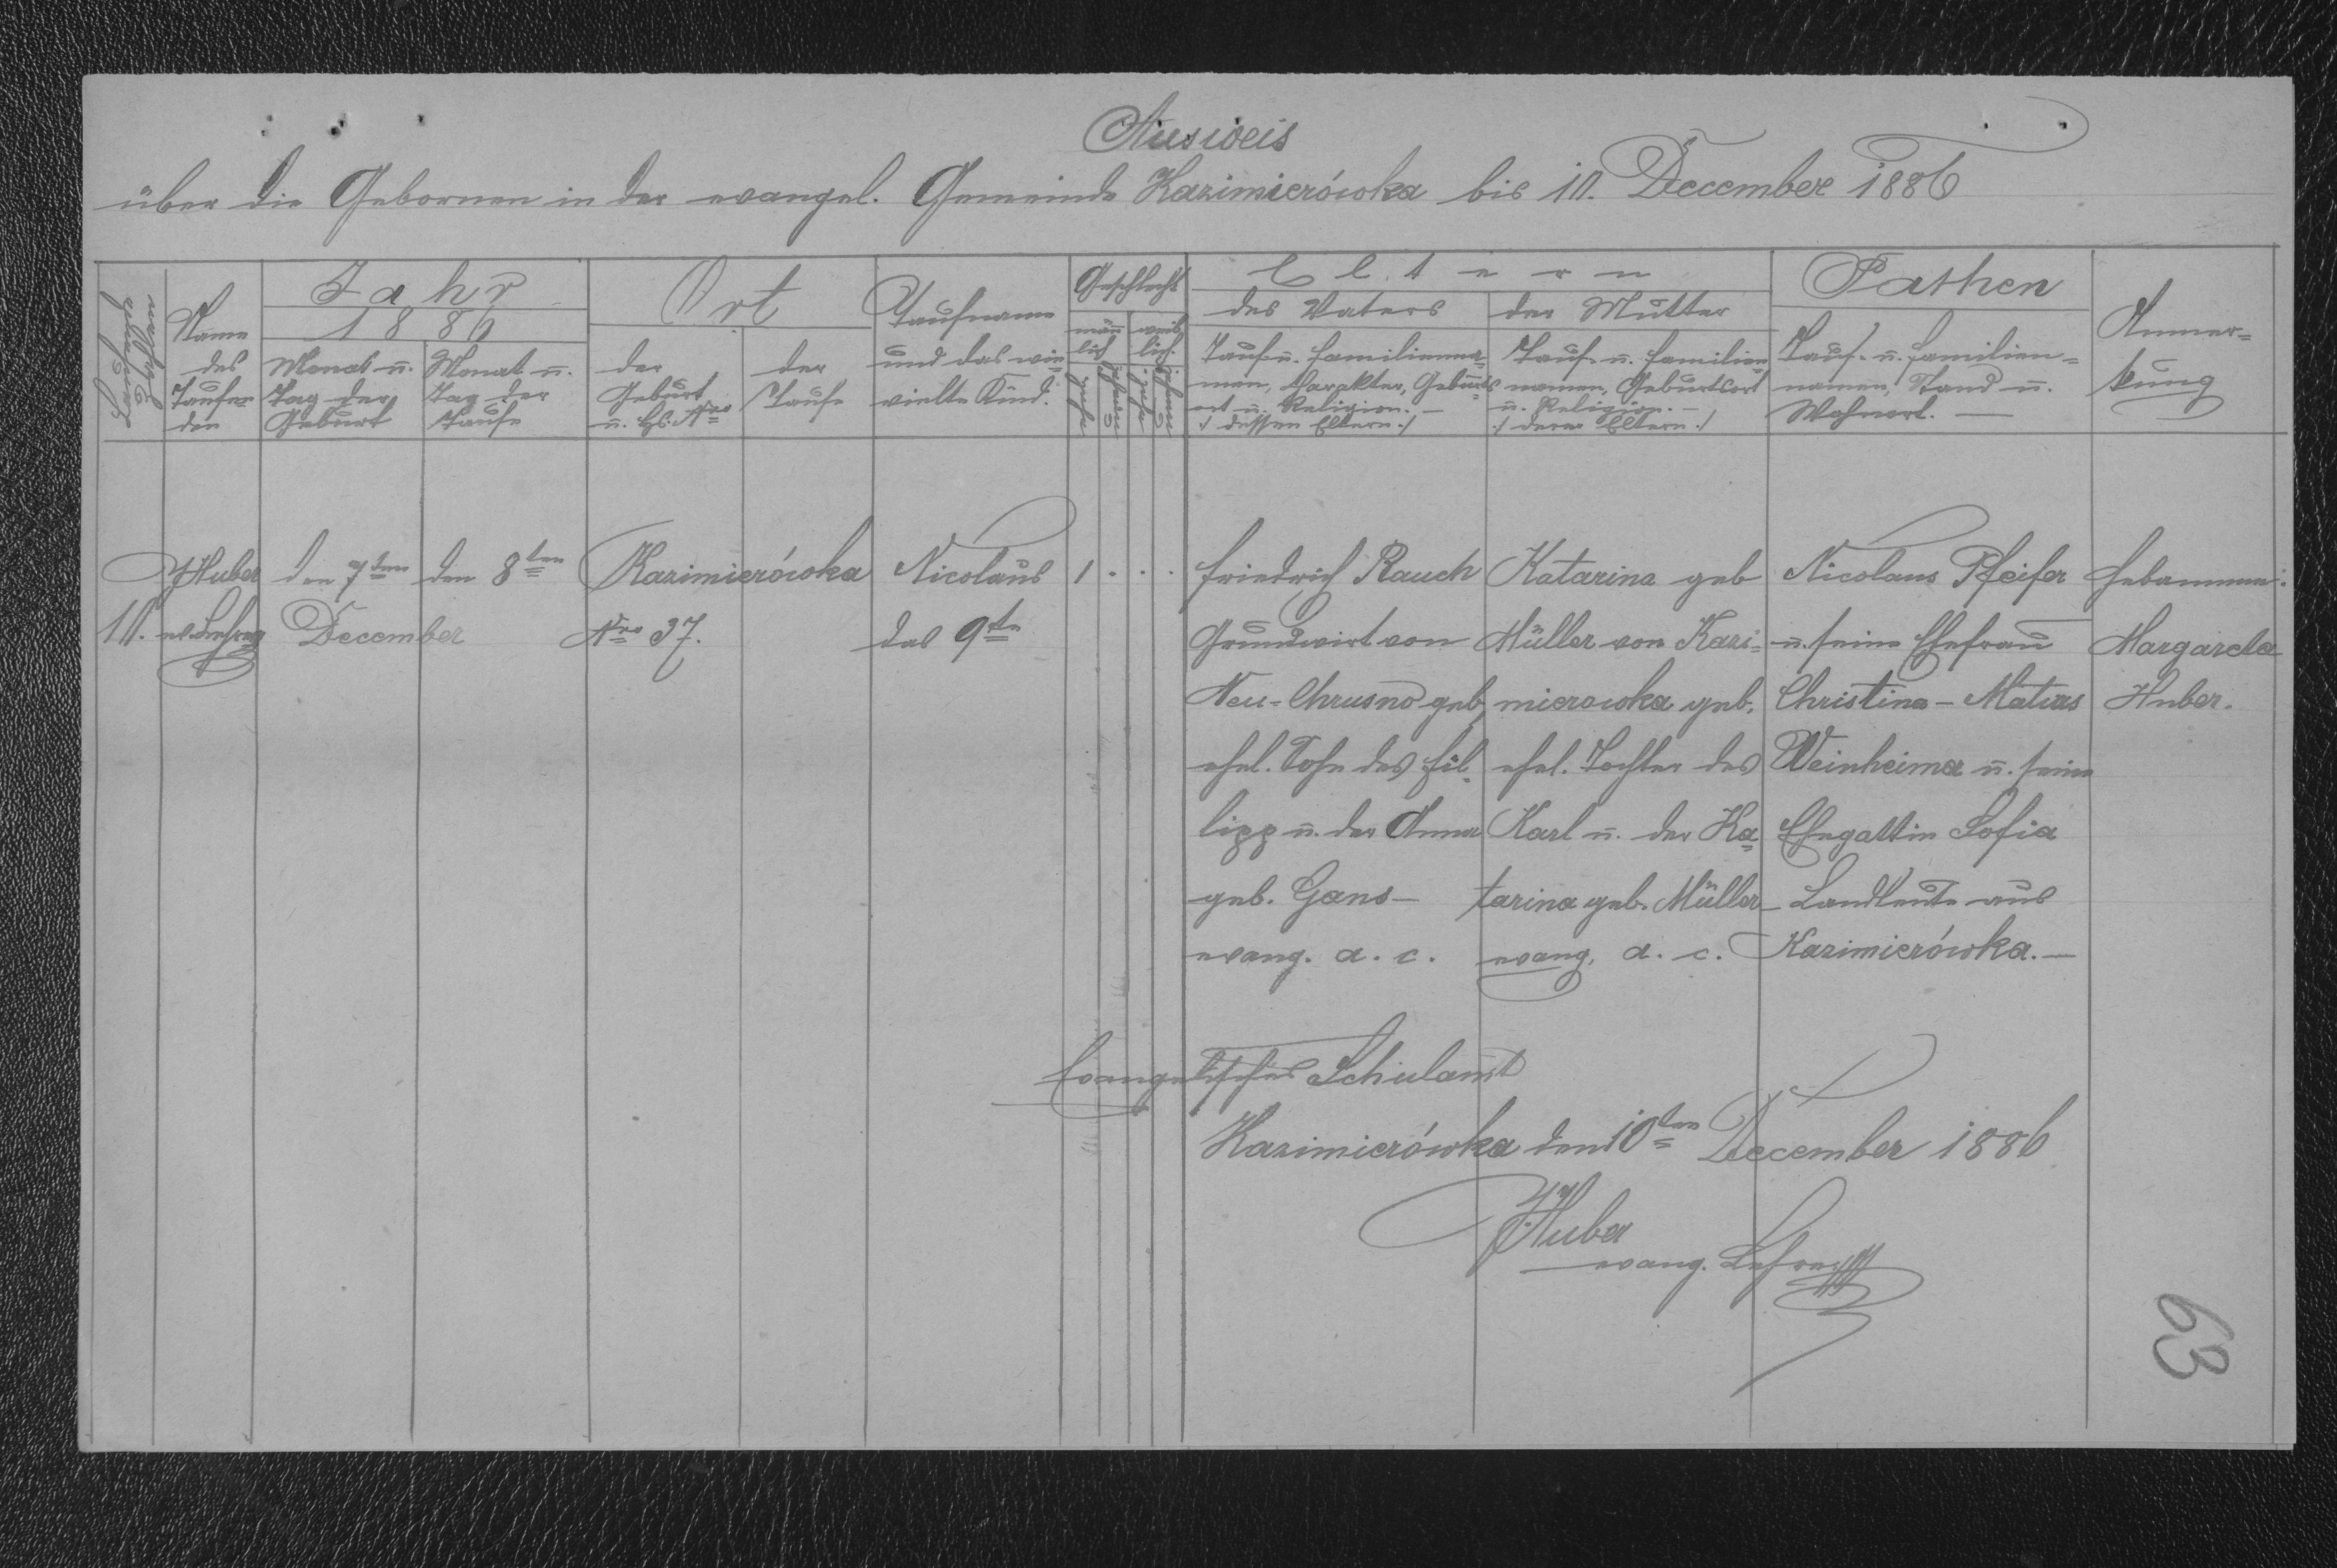 Ausweis
über die Gebornen in der evangel. Gemeinde Kazimierówka bis 10. December 1886
Name
des
Taufen-
den
Jahr
1886
Monat u.
Tag der
Geburt
Monat u.
Tag der
Taufe
Ort
der
Geburt
u. Hs. Nro
der
Taufe
Taufname
und das wie-
vielte Kind.
Geschlecht
män
lich
weib
lich.
Eltern
des Vaters
Tauf u. Familienna-
men, Charakter, Geburts
ort u. Religion. —
./ dessen Eltern ./
der Mutter
Tauf- u. Familien
namen, Geburtsort
u. Religion. —
./ deren Eltern ./
Pathen
Tauf- u. Familien-
namen, Stand u.
Wohnort. —
Anmer-
kung
JHuber
ev. Lehrer
den 7ten
den 8ten
December
Kazimierówka
Nro 37.
Nicolaus
das 9te
1 . . .
Friedrich Rauch
Grundwirt von
Neu-Chrusno geb.
ehel. Sohn des Fil-
lipp u. der Anna
geb. Gans —
evang. a. c.
Katarina geb
Müller von Kazi-
mierowka geb.
ehel. Tochter des
Karl u. der Ka-
tarina geb. Müller
evang. a. c.
Nicolaus Pfeifer
u. seine Ehefrau
Christina - Matias
Weinheimer u. seine
Ehegattin Sofia
- Landleute aus
Kazimierówka. —
Hebamme:
Margareta
Huber.
Evangelisches Schulamt
Kazimierówka den 10ten December 1886
JHuber
evang. Lehrer
63